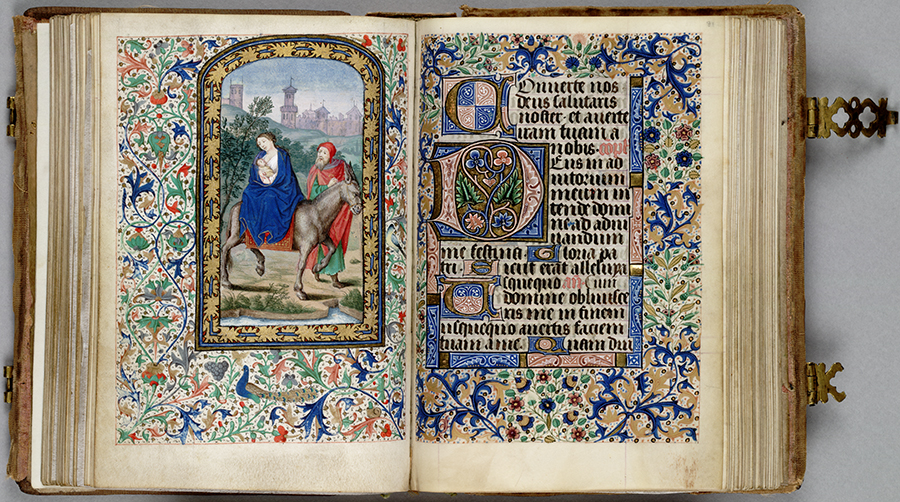 Onuerte nos
deus salutaris
noster· et auerte
iram tuam a
nobis· 
Eus in ad
iutorium
meum in
tende domi
ne ad adiu
uandum
me festina Gloria pa
tri Sicut erat alleluya
squequo an̄ Cum
domine obliuisce
ris me in finem
usquequo auertis faciem
tuam a me Quam diu